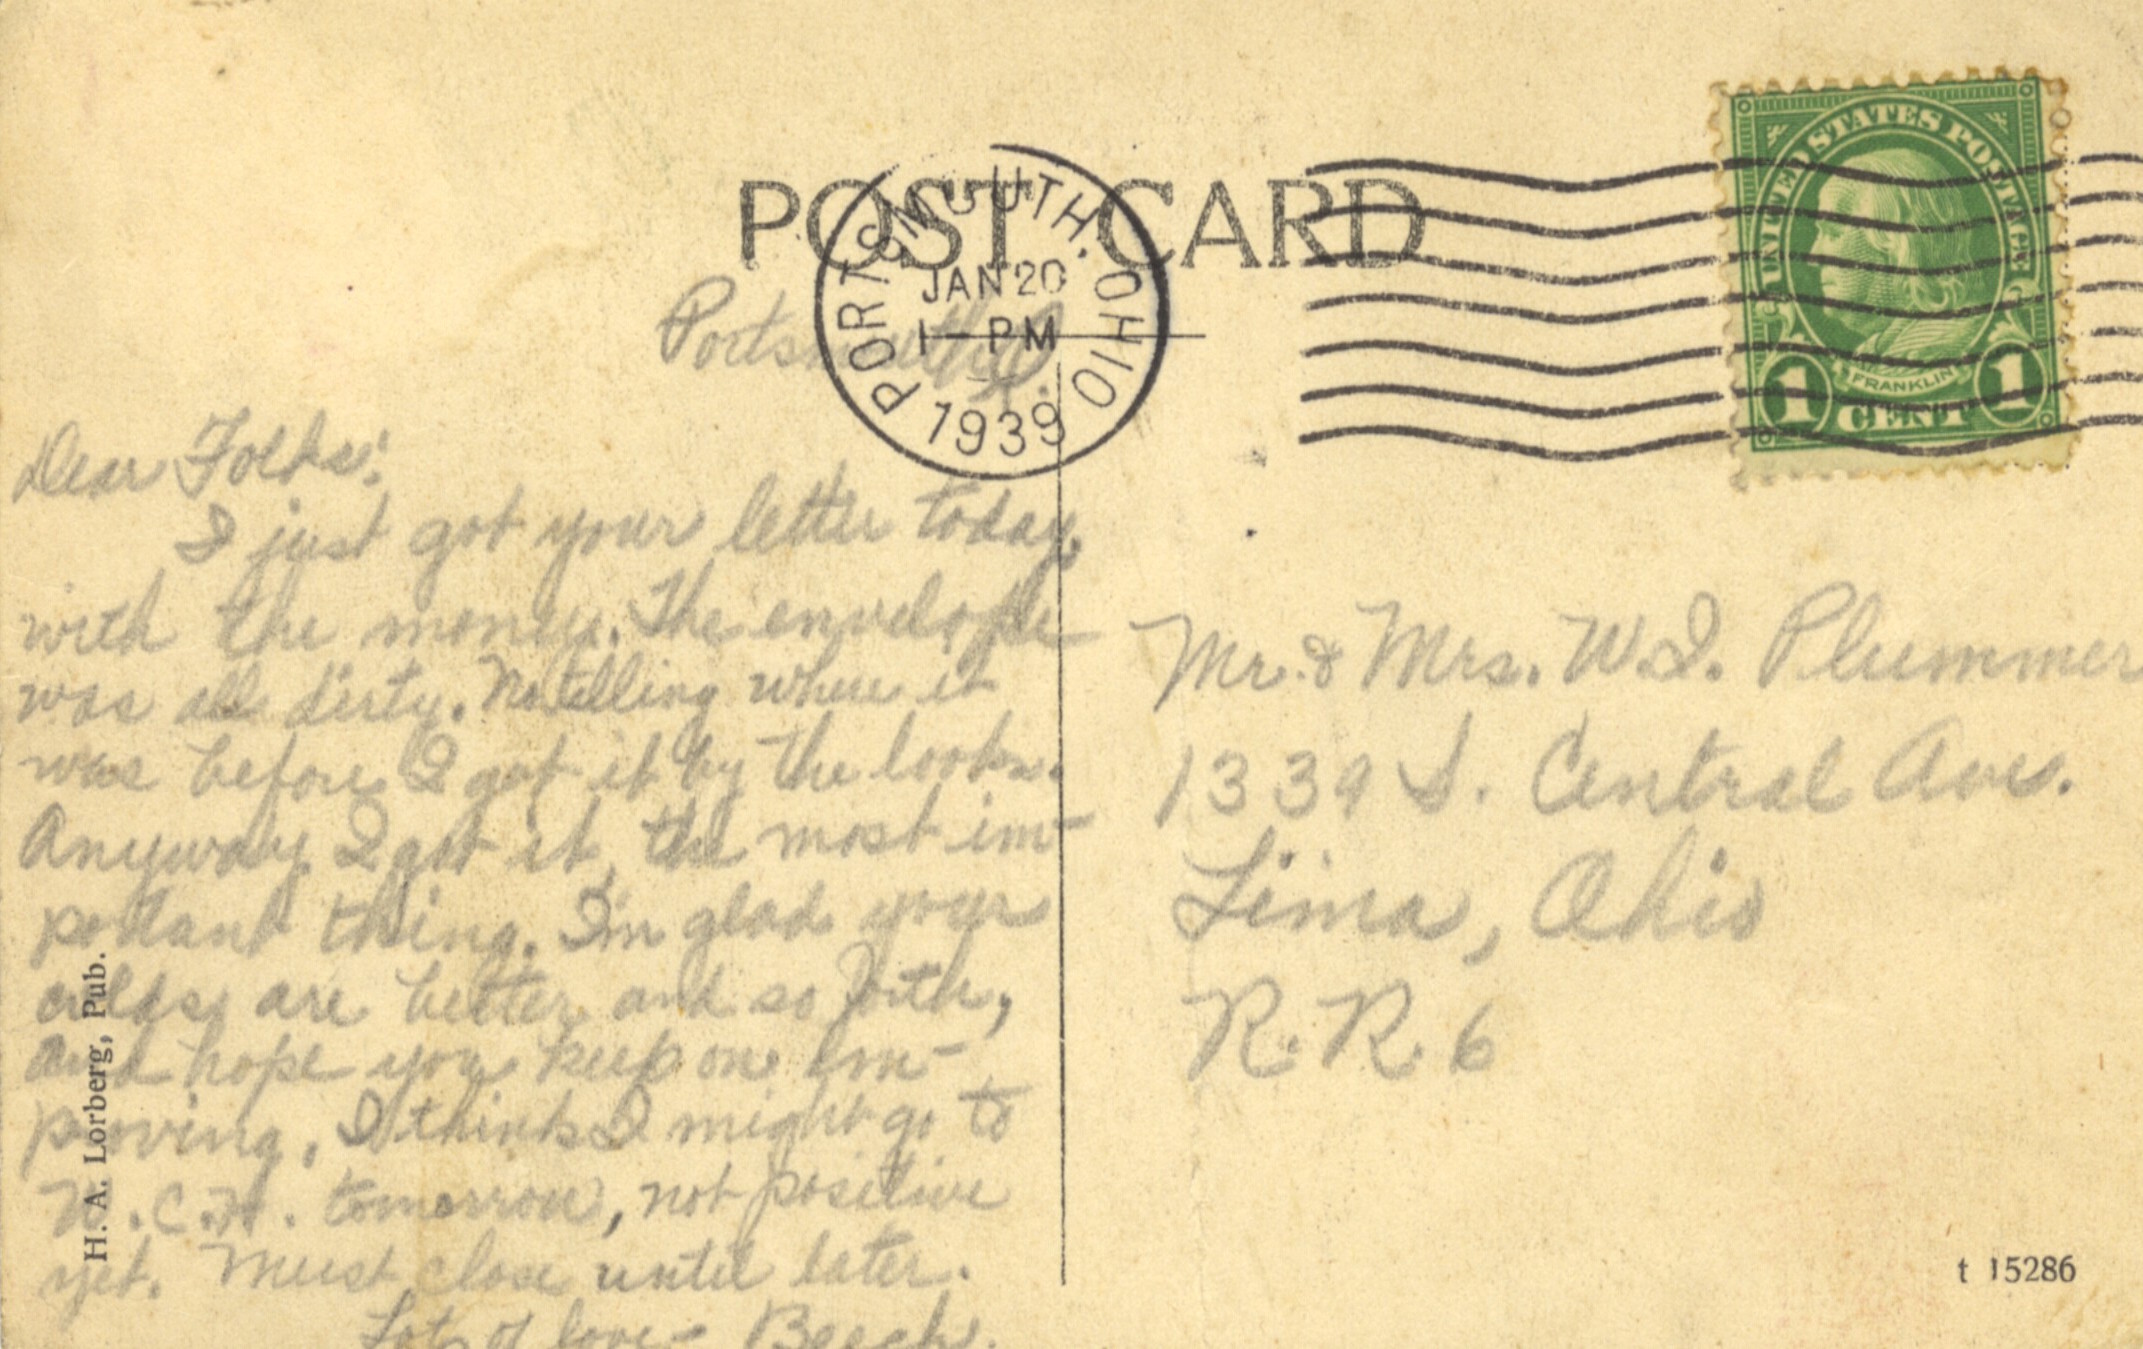 POST CARD
PORTSMOUTH, OHIO
JAN 20
1 - PM
1939
UNITED STATES POSTAGE
FRANKLIN
1 CENT 1
Portsmouth, O.
Dear Folks:
I just got your letter today,
with the money. The envelope
was all dirty. No telling where it
was before I got it by the looks.
Anyway I got it, the most im-
portant thing. I'm glad your
colds are better and so forth,
and hope you keep on im-
proving. I think I might go to
W.C.H. tomorrow, not positive
yet. Must close until later.
Lots of love - Beech.
Mr. & Mrs. W.I. Plummer
1339 S. Central Ave.
Lima, Ohio
R.R. 6
H. A. Lorberg, Pub.
t 15286